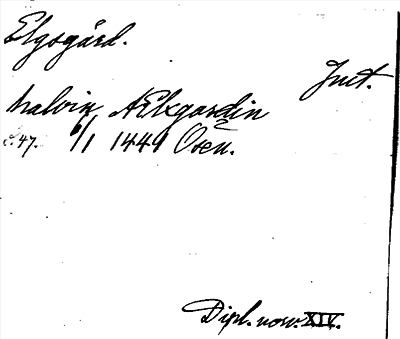 Elgsgård.
Inst.
halvin Ælxgardin
c. 47. 6/1 1449 Osen.
Dipl. norv. XIV.